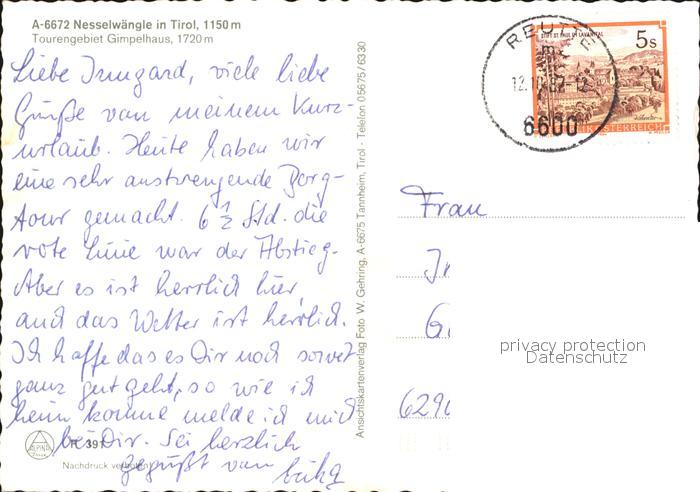 A-6672 Nesselwängle in Tirol, 1150 m
Tourengebiet Gimpelhaus, 1720 m
Liebe Irmgard, viele liebe
Grüße von meinem Kurz-
urlaub. Heute haben wir
eine sehr anstrengende Berg-
tour gemacht. 6 ½ Std. die
rote Linie war der Abstieg.
Aber es ist herrlich hier,
und das Wetter ist herrlich.
Ich hoffe das es Dir noch soweit
ganz gut geht, so wie ich
heim komme melde ich mich
bei Dir. Sei herzlich
gegrüßt von
R 391
Nachdruck verboten
Ansichtskartenverlag Foto W. Gehring, A-6675 Tannheim, Tirol · Telefon 05675/6330
STIFT ST. PAUL IM LAVANTTAL
5 s
REPUBLIK ÖSTERREICH
REUTTE
6600
Frau
629
privacy protection
Datenschutz